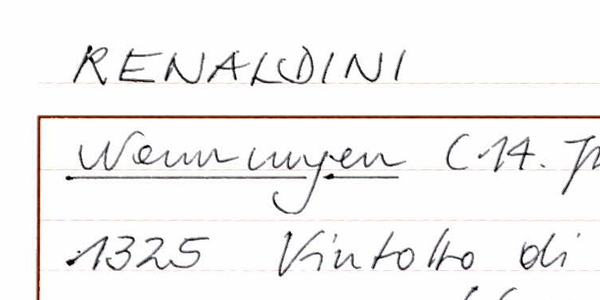 RENALDINI
Nennungen (14. J
1325 Vintolto di